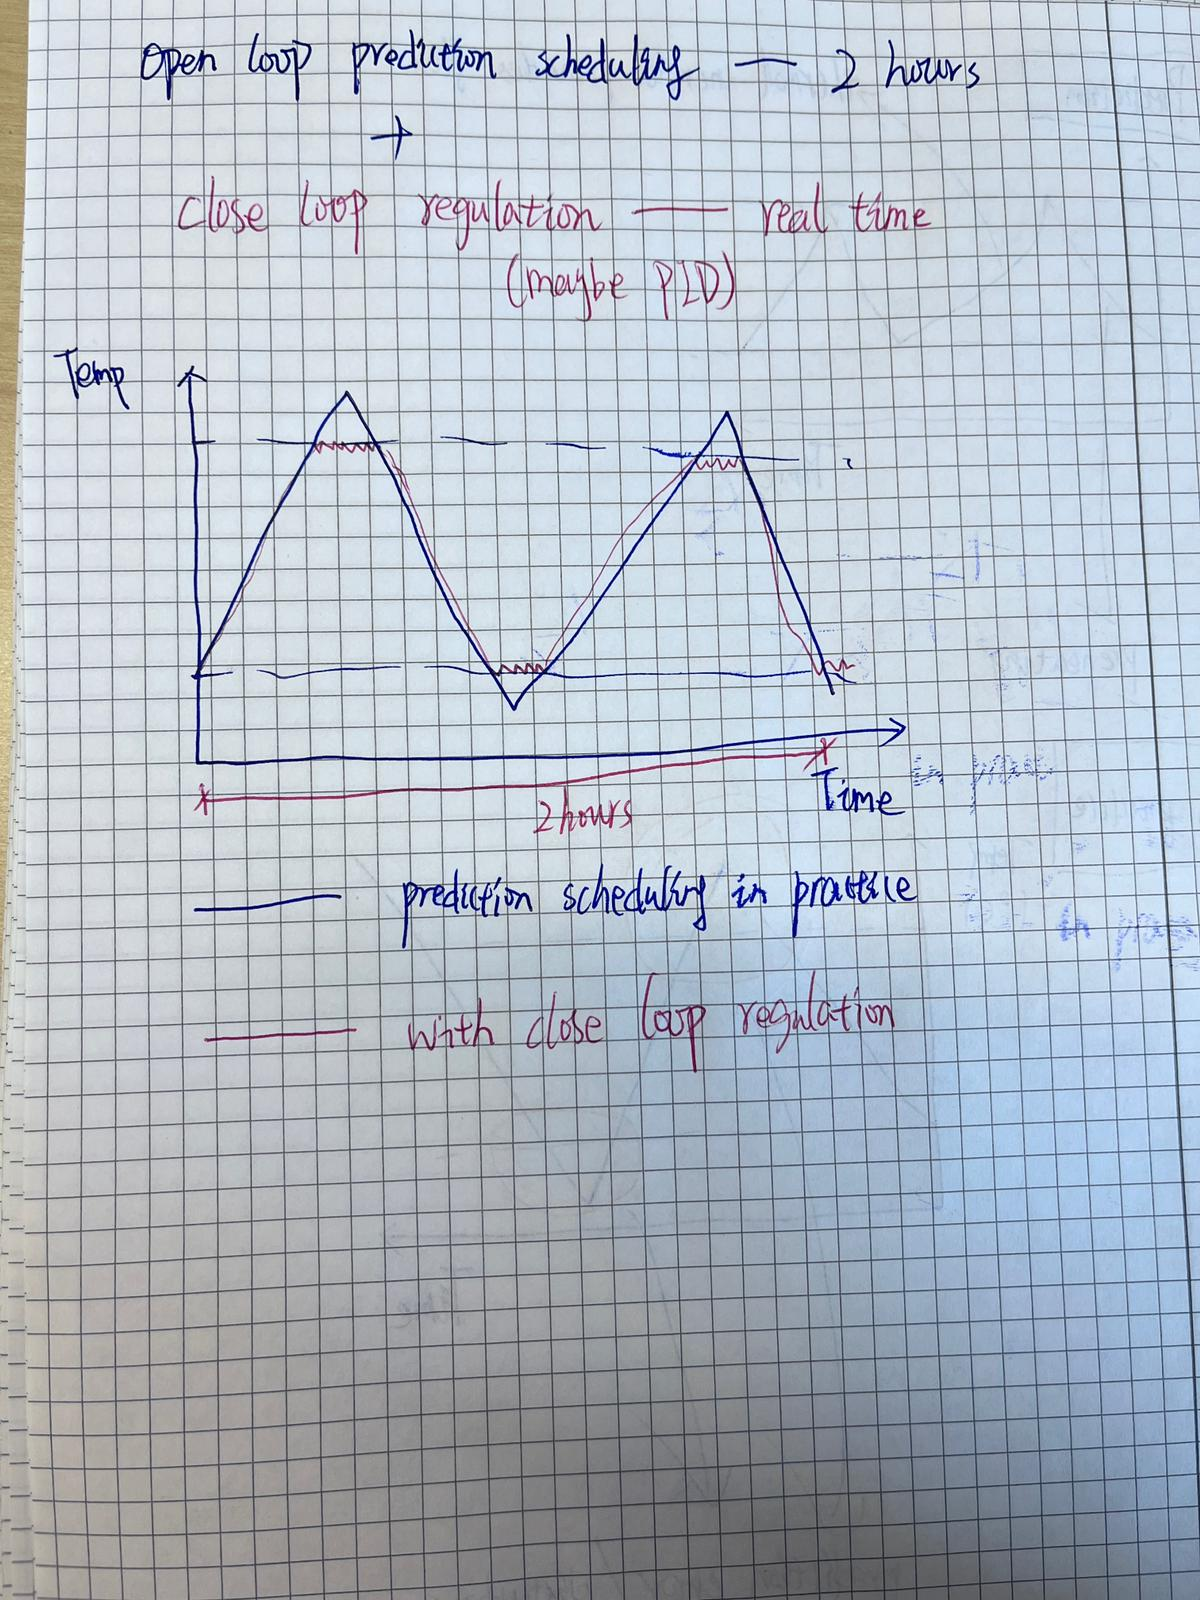 Open loop prediction scheduling — 2 hours
+
close loop regulation — real time
(maybe PID)
Temp
Time
2 hours
prediction scheduling in practice
with close loop regulation